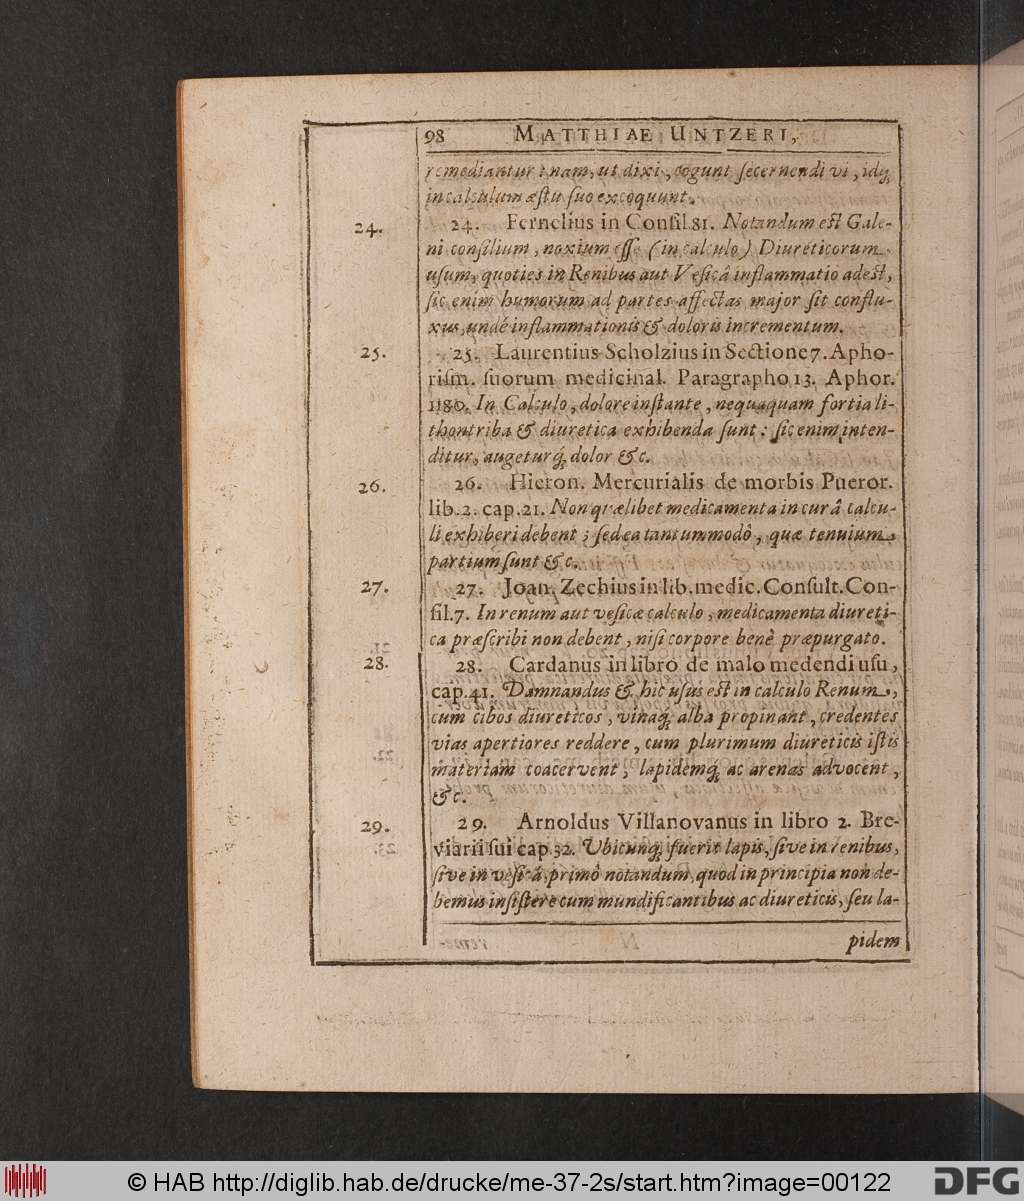 98 MATTHIAE UNTZERI,
remediantur: nam, ut dixi, cogunt secernendi vi, idq́;
in calculum æstu suo excoquunt.
24. 24. Fernelius in Consil. 81. Notandum est Gale-
ni consilium, noxium esse (in calculo) Diureticorum
usum, quoties in Renibus aut Vesicâ inflammatio adest,
sic enim humorum ad partes affectas major fit conflu-
xus, undè inflammationis & doloris incrementum.
25. 25. Laurentius Scholzius in Sectione 7. Apho-
rism. suorum medicinal. Paragrapho 13. Aphor.
1180. In Calculo, dolore instante, nequaquam fortia li-
thontriba & diuretica exhibenda sunt: sic enim inten-
ditur, augeturq́; dolor &c.
26. 26. Hieron. Mercurialis de morbis Pueror.
lib. 2. cap. 21. Non quælibet medicamenta in curâ calcu-
li exhiberi debent; sed ea tantummodò, quæ tenuium
partium sunt &c.
27. 27. Joan. Zechius in lib. medic. Consult. Con-
sil. 7. In renum aut vesicæ calculo, medicamenta diureti-
ca præscribi non debent, nisi corpore benè præpurgato.
28. 28. Cardanus in libro de malo medendi usu,
cap. 41. Damnandus & hic usus est in calculo Renum,
cum cibos diureticos, vinaq́; alba propinant, credentes
vias apertiores reddere, cum plurimum diureticis istis
materiam coacervent, lapidemq́; ac arenas advocent,
&c.
29. 29. Arnoldus Villanovanus in libro 2. Bre-
viarii sui cap. 32. Ubicunq́; fuerit lapis, sive in renibus,
sive in vesicâ, primò notandum, quod in principia non de-
bemus insistere cum mundificantibus ac diureticis, seu la-
pidem
© HAB http://diglib.hab.de/drucke/me-37-2s/start.htm?image=00122 DFG